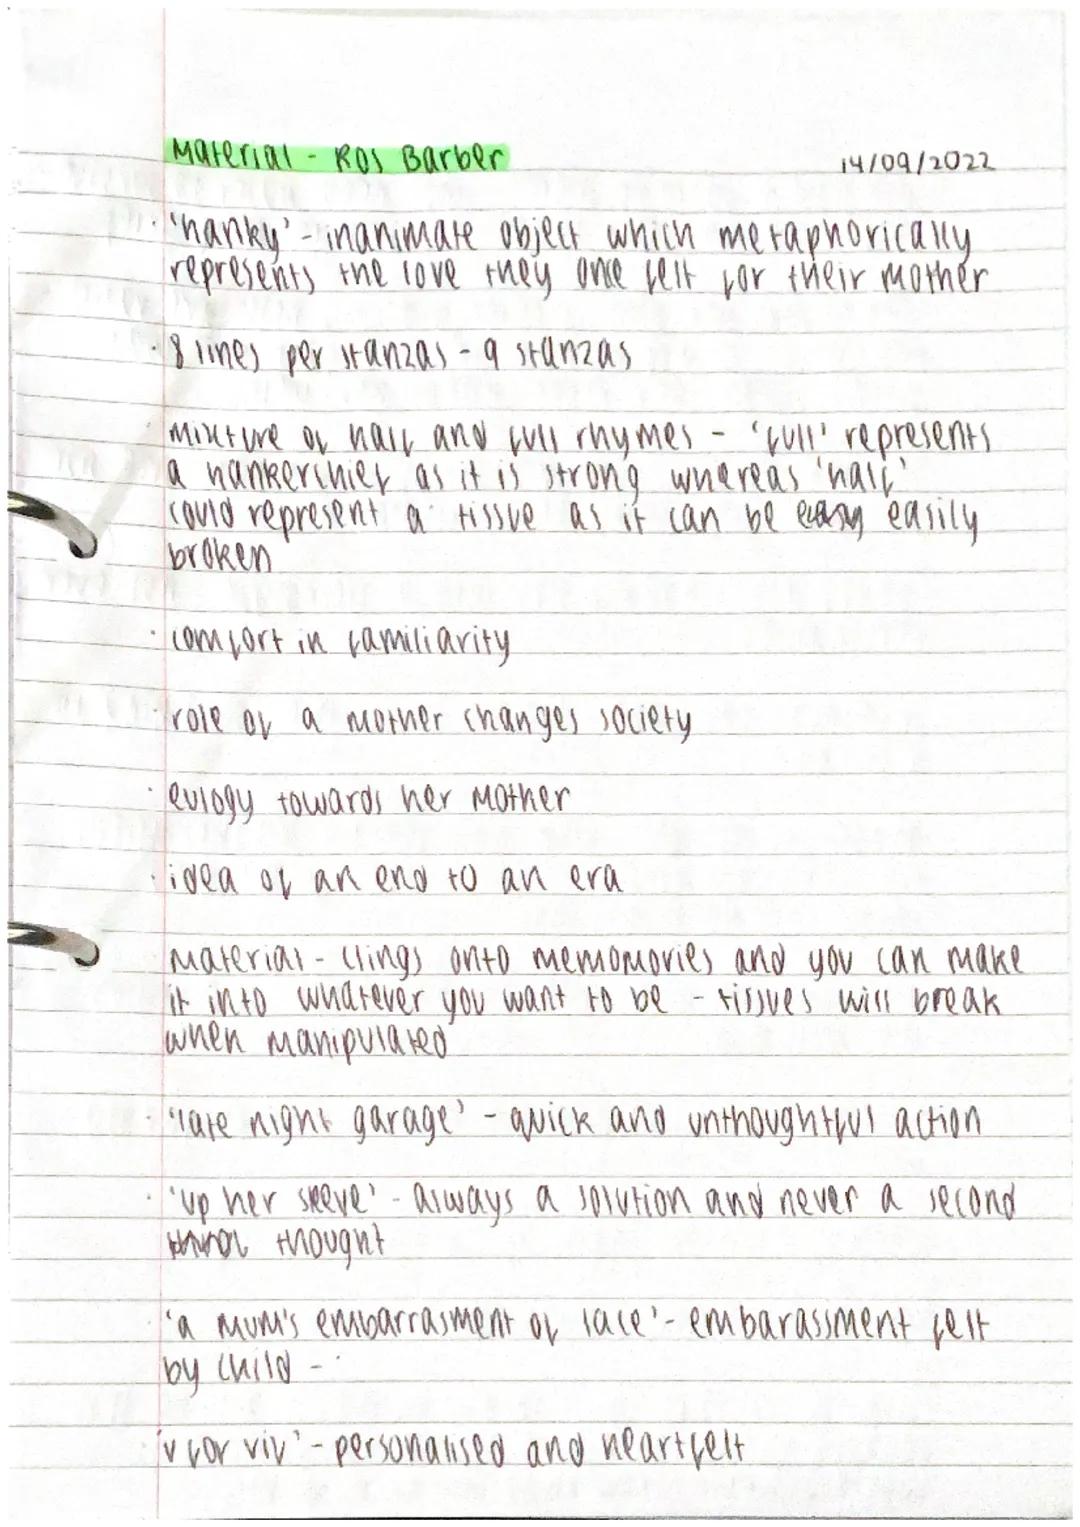 Material - Ros Barber
14/09/2022
· 'hanky' - inanimate object which metaphorically
represents the love they once felt for their mother
· 8 lines per stanzas - 9 stanzas
mixture of half and full rhymes - 'full' represents
a hankerchief as it is strong whereas 'half'
could represent a tissue as it can be easily
broken
· comfort in familiarity
role of a mother changes society
· eulogy towards her mother
· idea of an end to an era
material - clings onto memomories and you can make
it into whatever you want to be - tissues will break
when manipulated
· 'late night garage' - quick and unthoughtful action
· 'up her sleeve' - always a solution and never a second
thought
· 'a mum's embarrasment of lace' - embarassment felt
by child -
'v for viv' - personalised and heartfelt